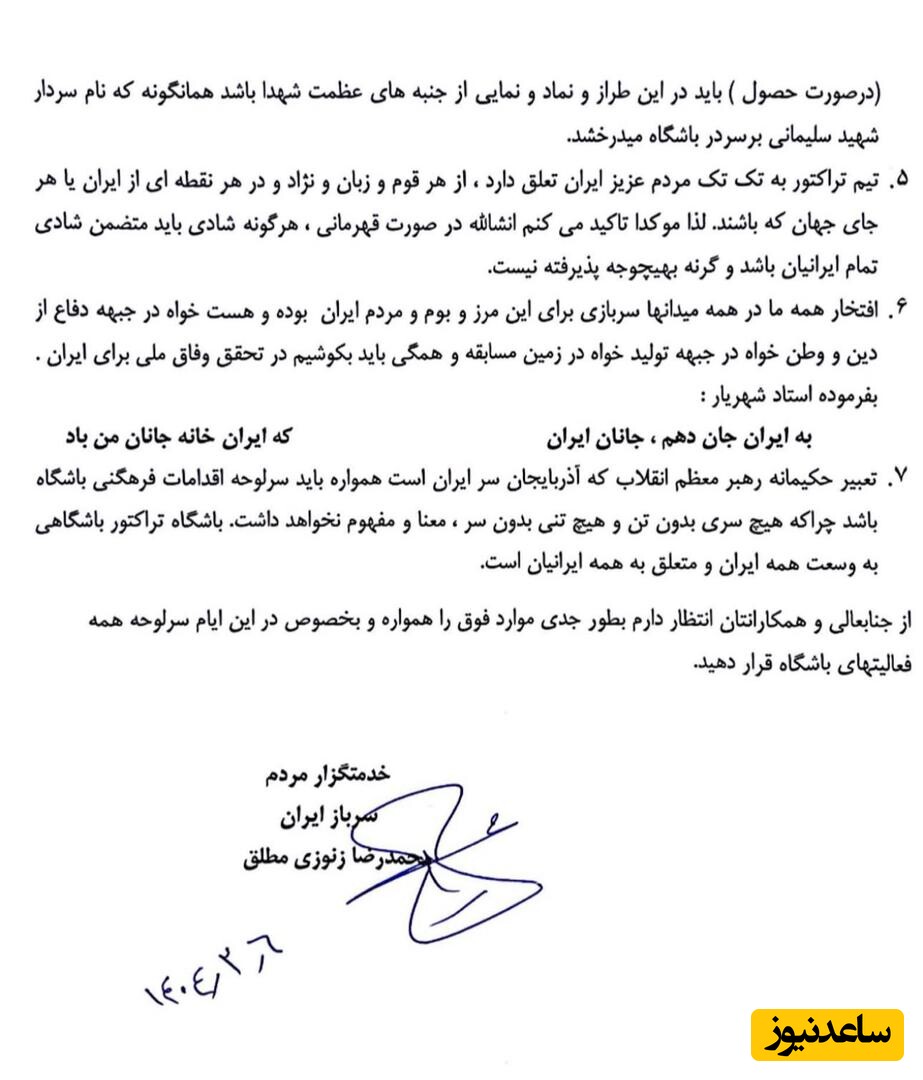 (درصورت حصول ) باید در این طراز و نماد و نمایی از جنبه های عظمت شهدا باشد همانگونه که نام سردار
شهید سلیمانی برسردر باشگاه میدرخشد.
۵. تیم تراکتور به تک تک مردم عزیز ایران تعلق دارد ، از هر قوم و زبان و نژاد و در هر نقطه ای از ایران یا هر
جای جهان که باشند. لذا موکدا تاکید می کنم انشالله در صورت قهرمانی ، هرگونه شادی باید متضمن شادی
تمام ایرانیان باشد و گرنه بهیچوجه پذیرفته نیست.
۶. افتخار همه ما در همه میدانها سربازی برای این مرز و بوم و مردم ایران بوده و هست خواه در جبهه دفاع از
دین و وطن خواه در جبهه تولید خواه در زمین مسابقه و همگی باید بکوشیم در تحقق وفاق ملی برای ایران .
بفرموده استاد شهریار :
به ایران جان دهم ، جانان ایران که ایران خانه جانان من باد
۷. تعبیر حکیمانه رهبر معظم انقلاب که آذربایجان سر ایران است همواره باید سرلوحه اقدامات فرهنگی باشگاه
باشد چراکه هیچ سری بدون تن و هیچ تنی بدون سر ، معنا و مفهوم نخواهد داشت. باشگاه تراکتور باشگاهی
به وسعت همه ایران و متعلق به همه ایرانیان است.
از جنابعالی و همکارانتان انتظار دارم بطور جدی موارد فوق را همواره و بخصوص در این ایام سرلوحه همه
فعالیتهای باشگاه قرار دهید.
خدمتگزار مردم
سرباز ایران
محمدرضا زنوزی مطلق
۱۴۰۴٫۲٫۶
ساعدنیوز